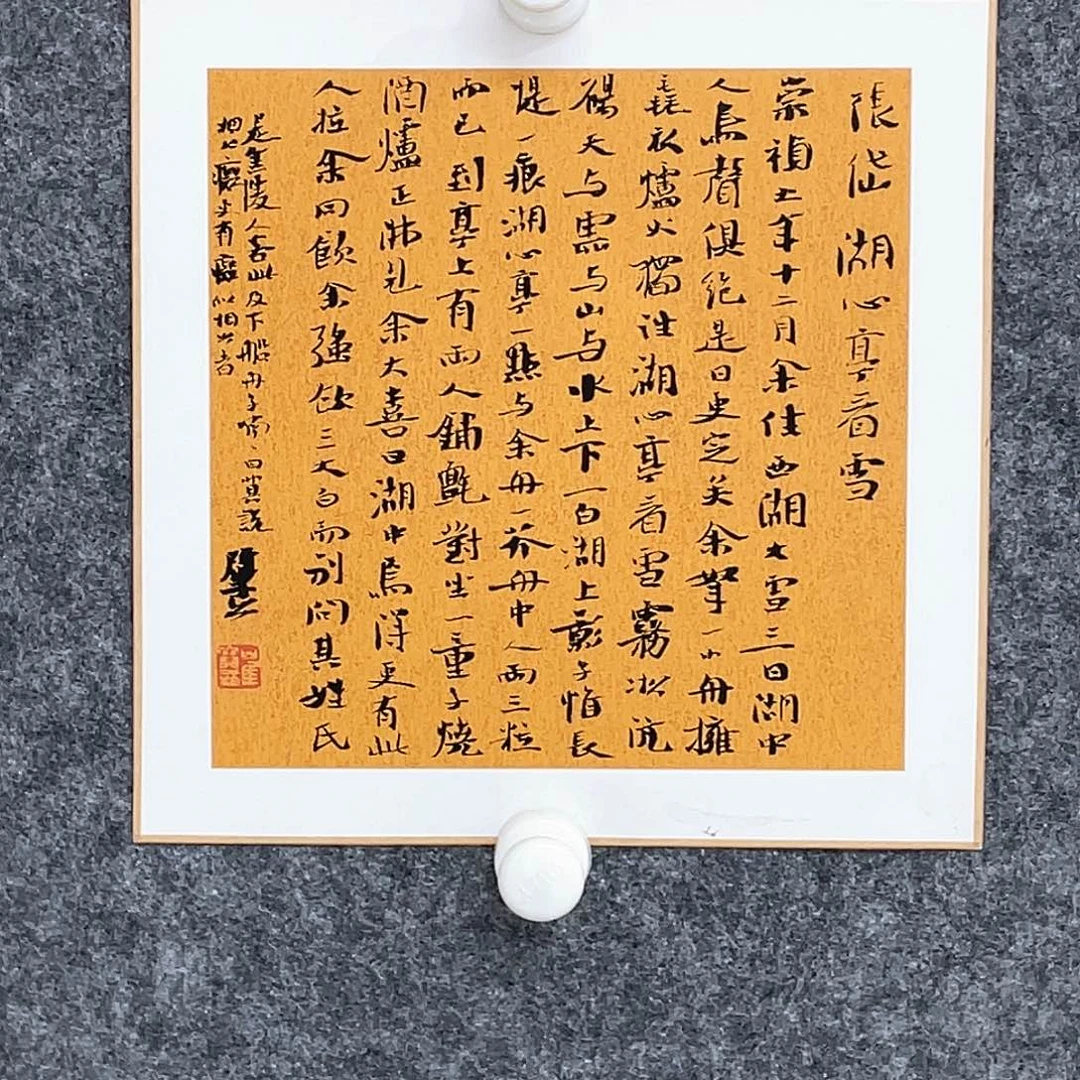 張岱湖心亭看雪
崇禎五年十二月余住西湖大雪三日湖中
人鳥聲俱絕是日更定矣余拏一小舟擁
毳衣爐火獨往湖心亭看雪霧淞沆
碭天与雲与山与水上下一白湖上影子惟長
堤一痕湖心亭一點与余舟一芥舟中人兩三粒
而已到亭上有兩人鋪氈對坐一童子燒
酒爐正沸見余大喜曰湖中焉得更有此
人拉余同飲余強飲三大白而別問其姓氏
是金陵人客此及下船舟子喃〻曰莫說
相公癡更有癡似相公者